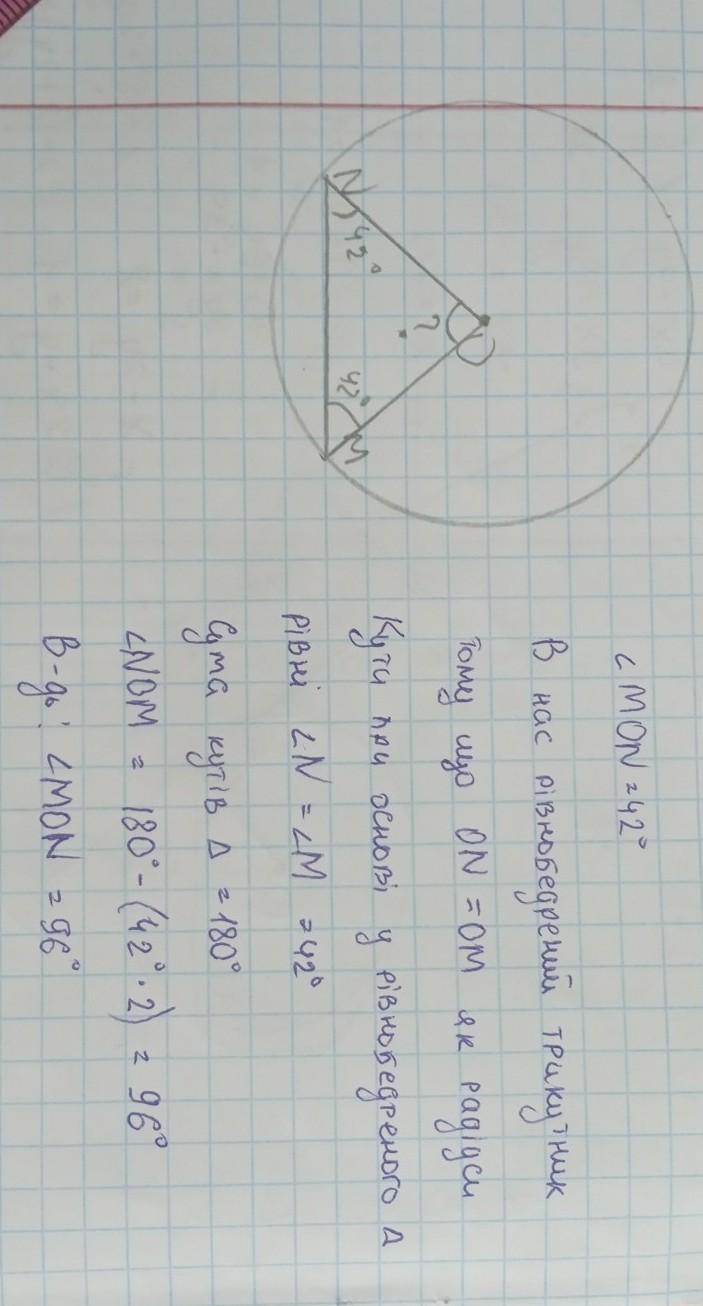 O
?
N
42°
42°
M
∠MON = 42°
В нас рівнобедрений трикутник
тому що ON = OM як радіуси
Кути при основі у рівнобедреного Δ
рівні ∠N = ∠M = 42°
Сума кутів Δ = 180°
∠NOM = 180° - (42° · 2) = 96°
В-дь: ∠MON = 96°